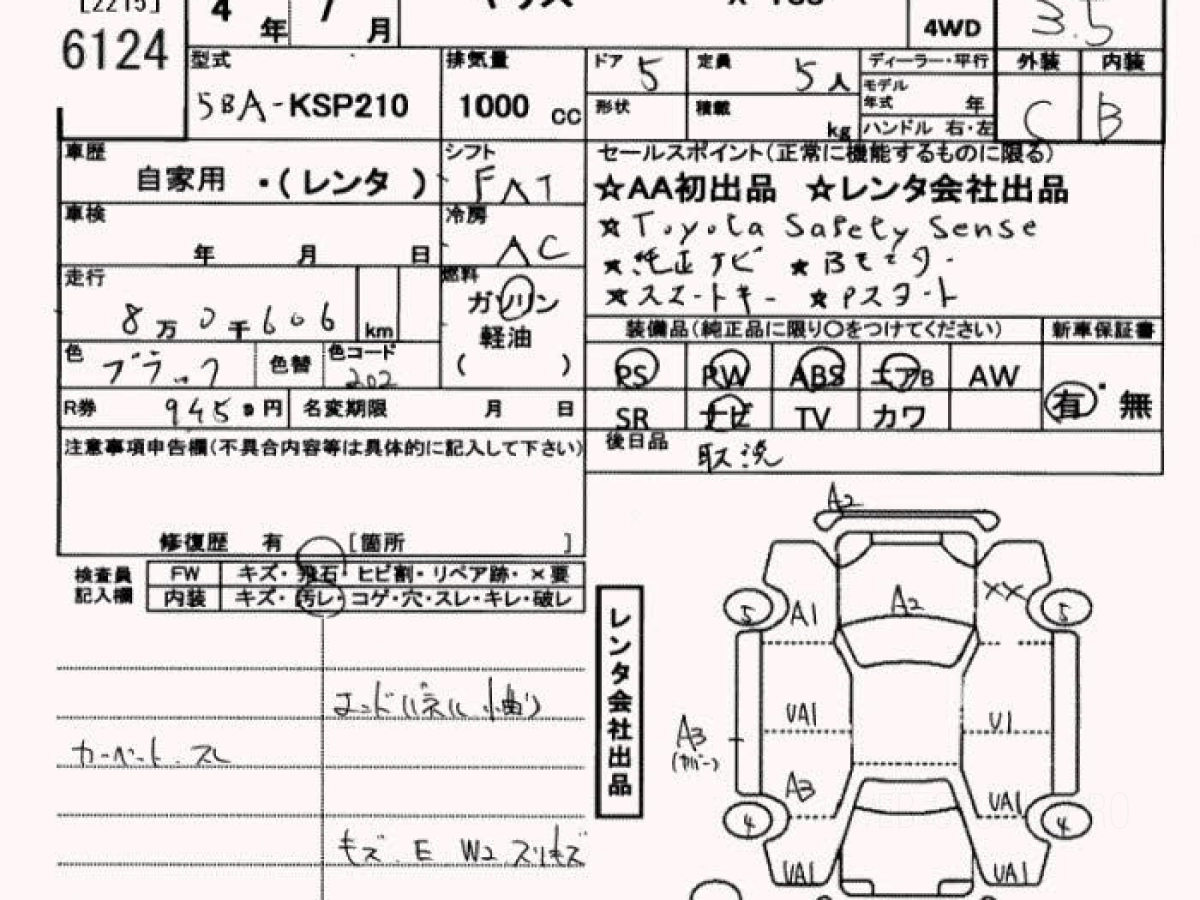 [2215]
6124
4 年 7 月
ヤリス
4WD
3.5
型式
5BA-KSP210
排気量
1000 cc
ドア 5
定員 5人
形状
積載 kg
ディーラー・平行
モデル年式 年
ハンドル 右・左
外装 C
内装 B
車歴
自家用 ・( レンタ )
シフト
FAT
車検
年 月 日
冷房
AC
走行
8 万 0 千 606 km
燃料
ガソリン
軽油
( )
色 ブラック
色替
色コード 202
R券 9450 円
名変期限 月 日
セールスポイント(正常に機能するものに限る)
☆AA初出品 ☆レンタ会社出品
★Toyota Safety Sense
★純正ナビ ★Bモニター
★スマートキー ★Pスタート
装備品(純正品に限り〇をつけてください)
新車保証書
PS PW ABS エアB AW
有・無
SR ナビ TV カワ
後日品 取説
注意事項申告欄(不具合内容等は具体的に記入して下さい)
修復歴 有 [箇所 ]
検査員記入欄
FW キズ・飛石・ヒビ割・リペア跡・×要
内装 キズ・汚レ・コゲ・穴・スレ・キレ・破レ
エンドパネル小曲
カーペットスレ
キズ E W2 スリキズ
レンタ会社出品
A2
5 A1 A2 XX 5
UA1 U1
A3
(カバー)
A3
UA1
4 4
UA1 UA1